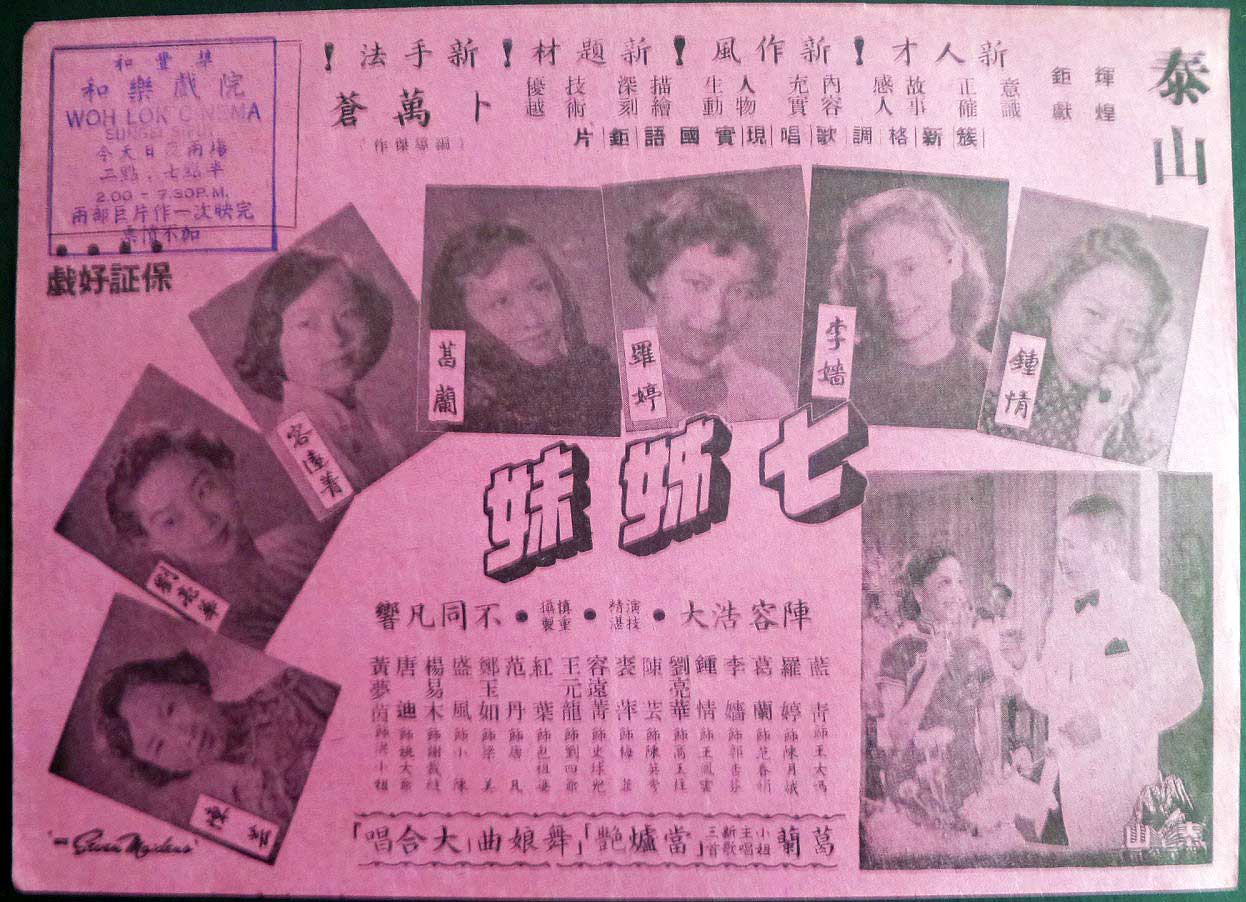 泰山
輝煌
鉅獻
新人才!新作風!新題材!新手法!
意識正確
故事感人
內容充實
人物生動
描繪深刻
技術優越
卜萬蒼
(編導傑作)
簇|新|格|調|歌|唱|現|實|國|語|鉅|片
和豐華
和樂戲院
WOH LOK CINEMA
SUNGEI SIPUT
今天日夜兩場
二點.七點半
2.00 - 7.30 P.M.
兩部巨片作一次映完
票價不加
保証好戲
鍾情
李嬙
羅婷
葛蘭
容遠菁
劉亮華
陳芸
七姊妹
陣容浩大•演技精湛•慎重攝製•不同凡響
藍青飾王大媽
羅婷飾陳月娥
葛蘭飾范春娟
李嬙飾郭杏芬
鍾情飾王鳳雲
劉亮華飾高玉
陳芸飾陳英秀
裘萍飾梅
容遠菁飾史球兒
王元龍飾劉四爺
紅葉飾包租婆
范丹飾唐凡
鄭玉如飾梁美
盛風飾小陳
楊易木飾謝裁縫
唐迪飾姚大爺
黃夢茵飾洪小姐
葛蘭小姐主唱新歌三首「當爐艷」「舞娘曲」「大合唱」
泰山
"Seven Maidens"